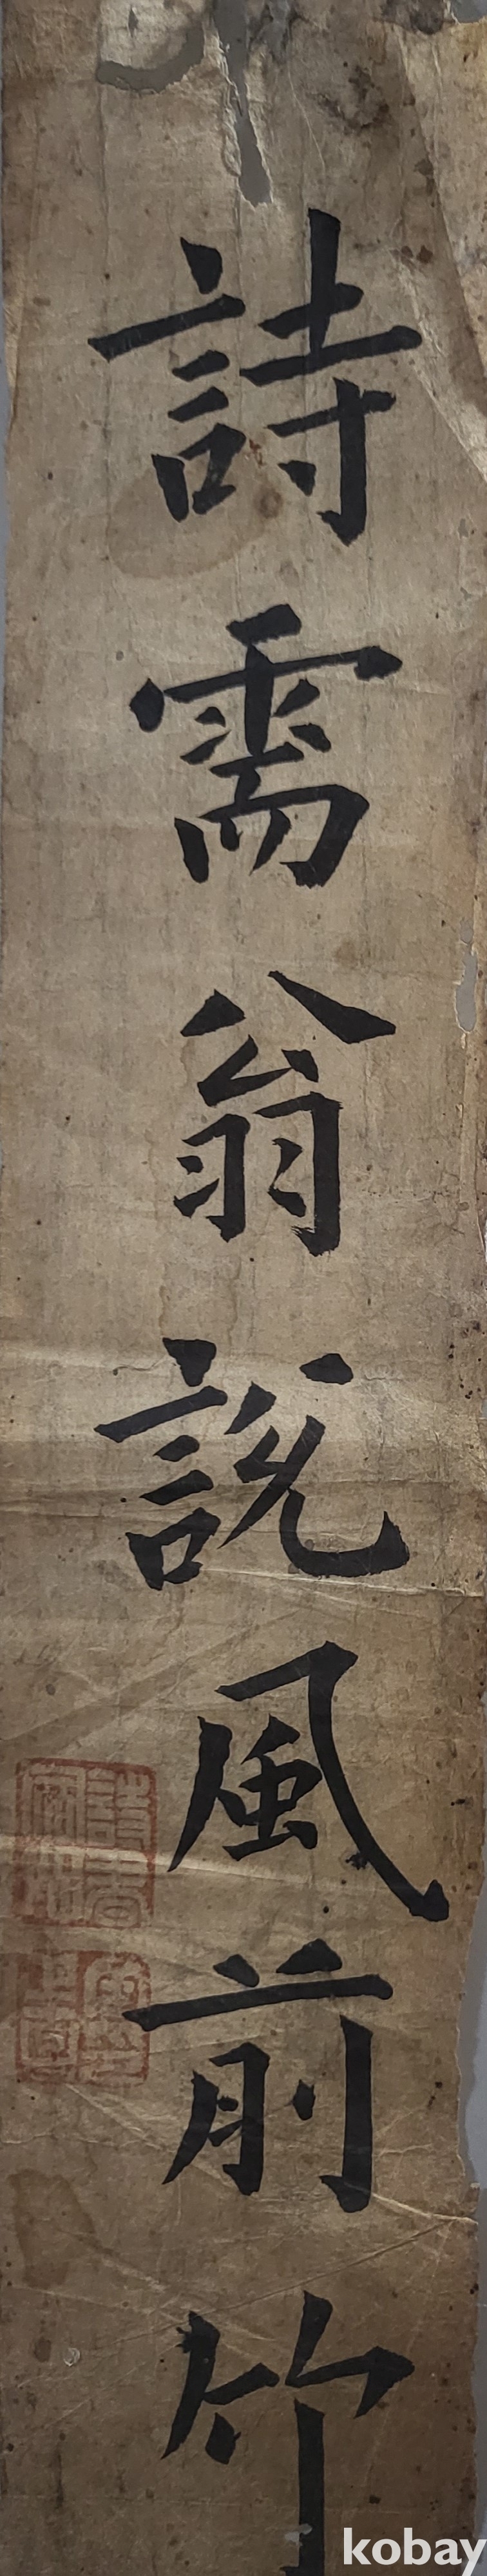 詩需翁說風前竹
kobay